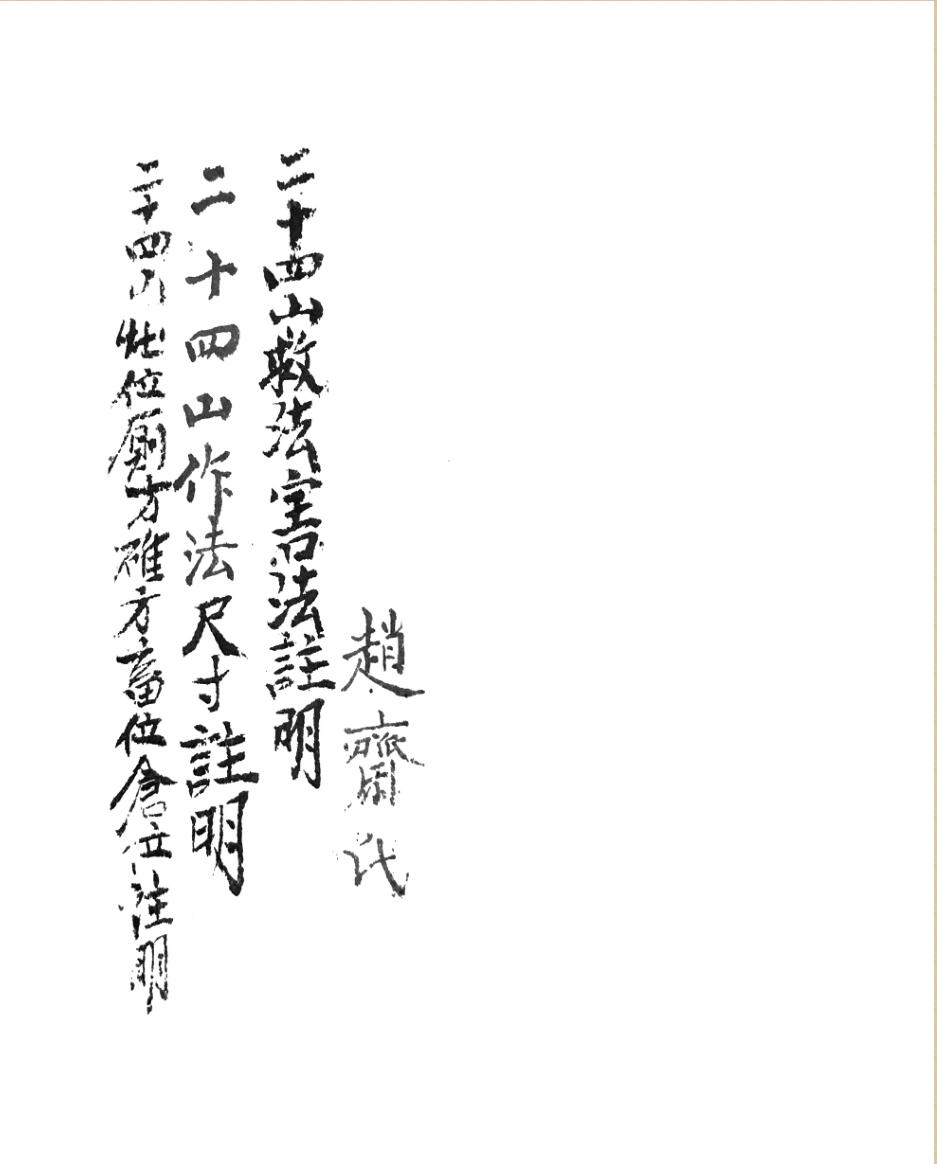 趙齋氏
二十四山救法害法註明
二十四山作法尺寸註明
二十四山灶位厠方碓方畜位倉位註明